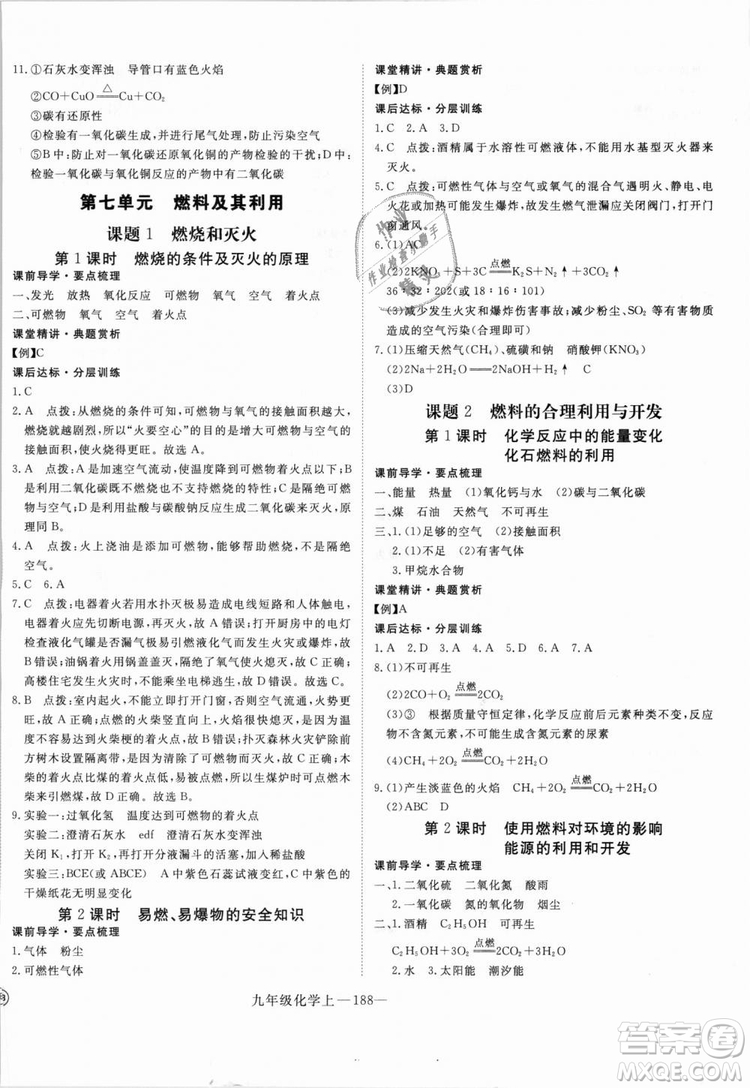 11. ①石灰水变浑浊　导管口有蓝色火焰
②CO＋CuO=△=Cu＋CO₂
③碳有还原性
④检验有一氧化碳生成，并进行尾气处理，防止污染空气
⑤B中：二氧化碳还原氧化铜的产物检验的干扰；对一氧化碳与氧化铜反应的产物检验有干扰
第七单元　燃料及其利用
课题1　燃烧和灭火
第1课时　燃烧的条件及灭火的原理
课前导学·要点梳理
一、发光　放热　氧化反应　可燃物　氧气　空气　着火点
二、可燃物　氧气　空气　着火点
课堂精讲·典题赏析
【例】C
课后达标·分层训练
1. C
2. A　点拨：从燃烧的条件可知，可燃物与氧气的接触面积越大，燃烧就越剧烈，所以“火要空心”的实质是增大可燃物与空气的接触面积，使木柴燃烧得更旺。故选A。
3. B　点拨：A是加速空气流动，使温度降低到着火点以下；B是利用二氧化碳不燃烧也不支持燃烧的性质；C是隔绝空气；D是利用盐酸与碳酸钠反应的二氧化碳灭火，原理同B。
4. A　点拨：火上浇油是增加可燃物，能够帮助燃烧，而不是隔绝空气。
5. C　6. A
7. C　点拨：电器着火用水扑灭极易造成短路和人体触电，电器着火，应首先切断电源，故A错误；打开厨房中的电灯检查液化气罐是否漏气极易引燃液化气而发生火灾或爆炸，故B错误；油锅着火用锅盖盖灭，隔绝了空气，故C正确；高楼住宅发生火灾时，不能乘坐电梯逃生，故D错误。
8. B　点拨：室内起火，不能立即打开门窗，否则遇空气，火势更旺，A错误；将点燃的火柴竖直向上，火焰很快熄灭，是因为火柴梗温度达不到着火点，B正确；扑灭森林火灾铲除前方树木设置隔离带，是为了移走可燃物，C错误；木柴的着火点比煤低，所以生煤炉时可用木柴引燃，不能说木柴的着火点高，故D错误。
9. 实验一：过氧化氢　温度达到可燃物的着火点
实验二：澄清石灰水　edf　澄清石灰水变浑浊
关闭K₁、K₂，打开分液漏斗的活塞，加入稀盐酸
实验三：BCE（或ABCE）　A中紫色石蕊试液变红，E中紫色的干燥纸花无明显变化
第2课时　易燃、易爆物的安全知识
课前导学·要点梳理
1. 气体　粉尘
2. 可燃性气体
课堂精讲·典题赏析
【例】D
课后达标·分层训练
1. C　2. A　3. D
4. C　点拨：酒精属于水溶性可燃液体，不能用水基型灭火器灭火。
5. C　点拨：可燃性气体与空气或氧气的混合气遇火花、静电、电火花等易发生爆炸，故发生燃气泄漏应关闭阀门，打开门窗通风。
6. (1)AC
(2)2KNO₃＋S＋3C=点燃=K₂S＋N₂↑＋3CO₂↑
36∶32∶202（或18∶16∶101）
(3)减少火灾和爆炸伤害事故；减少粉尘、SO₂ 等以及造成的空气污染（合理即可）
7. (1)压缩天然气（CH₄）、硫磺和钠　硝酸钾（KNO₃）
(2)2Na＋2H₂O=2NaOH＋H₂↑
(3)D
课题2　燃料的合理利用与开发
第1课时　化学反应中的能量变化
化石燃料的利用
课前导学·要点梳理
一、能量　热量　(1)氧化钙与水　(2)碳与二氧化碳
二、煤　石油　天然气　不可再生
三、1. (1)足够的空气　(2)接触面积
2. (1)不足　(2)有害气体
3. 甲烷水合物
课堂精讲·典题赏析
【例】A
课后达标·分层训练
1. A　2. D　3. A　4. D　5. D　6. A　7. C
8. (1)不可再生
(2)2CO＋O₂=点燃=2CO₂
(3)③　根据质量守恒定律，化学反应前后元素种类不变，反应物不含氮元素，不可能生成含氮元素的物质
(4)CH₄＋2O₂=点燃=CO₂＋2H₂O
9. (1)产生淡蓝色的火焰　CH₄＋2O₂=点燃=CO₂＋2H₂O
(2)ABC　(3)D
第2课时　使用燃料对环境的影响
能源的利用和开发
课前导学·要点梳理
一、二氧化硫　二氧化氮　酸雨
一氧化碳　氮的氧化物　烟尘
二、1. 酒精　C₂H₅OH　可再生
C₂H₅OH＋3O₂=点燃=2CO₂＋3H₂O
2. 水　3. 太阳能　潮汐能
九年级化学上—188—
答案圈
MXQE.COM